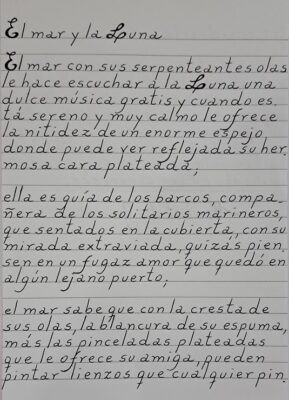 El mar y la Luna
El mar con sus serpenteantes olas
le hace escuchar a la Luna una
dulce música gratis y cuando es.
tá sereno y muy calmo le ofrece
la nitidez de un enorme espejo,
donde puede ver reflejada su her.
mosa cara plateada;
ella es guía de los barcos, compa.
ñera de los solitarios marineros,
que sentados en la cubierta, con su
mirada extraviada, quizás pien.
sen en un fugaz amor que quedó en
algún lejano puerto;
el mar sabe que con la cresta de
sus olas, la blancura de su espuma,
más las pinceladas plateadas
que le ofrece su amiga, pueden
pintar lienzos que cualquier pin.